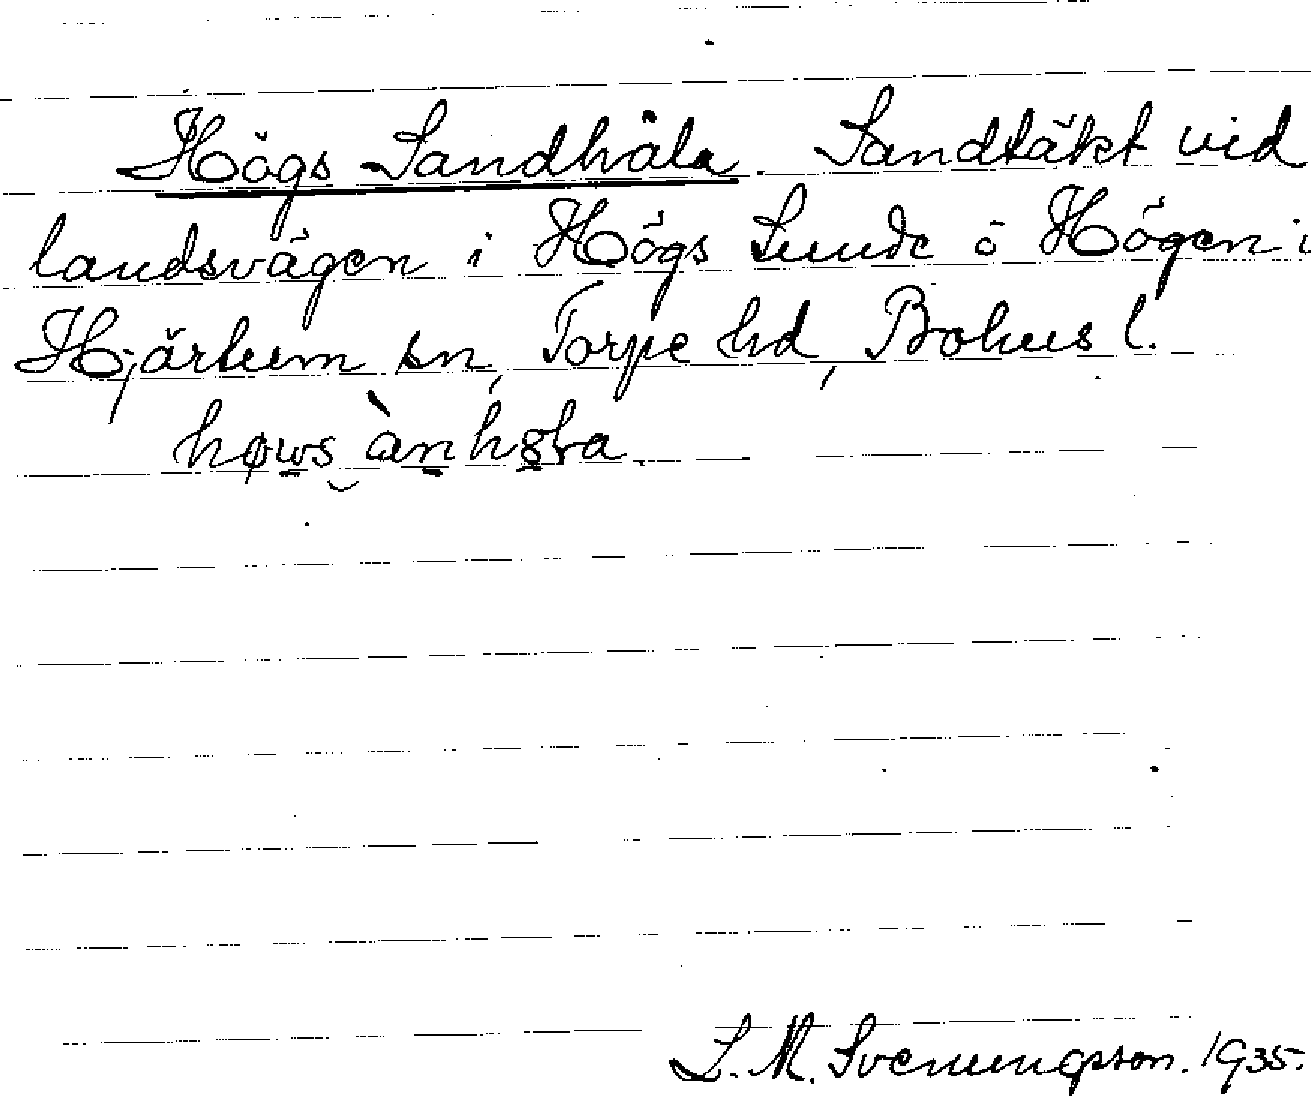 Högs Sandhåla. Sandtäkt vid
landsvägen i Högs Lunde ö Högen i
Hjärtum sn, Torpe hd, Bohus l.
S. M. Svenungsson. 1935.